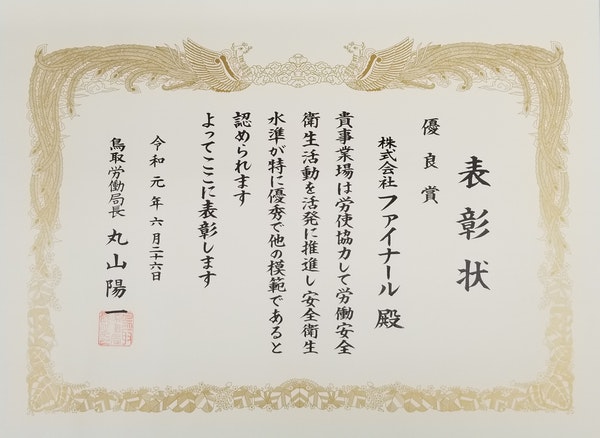 表彰状
優良賞
株式会社ファイナール 殿
貴事業場は労使協力して労働安全
衛生活動を活発に推進し安全衛生
水準が特に優秀で他の模範であると
認められます
よってここに表彰します
令和元年六月二十六日
鳥取労働局長 丸山陽一